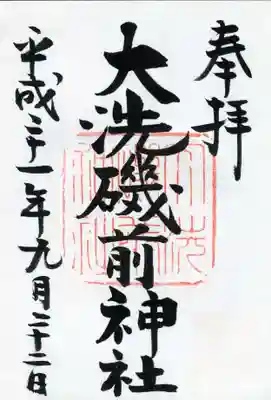 奉拝
大洗磯前神社
平成二十一年九月二十二日